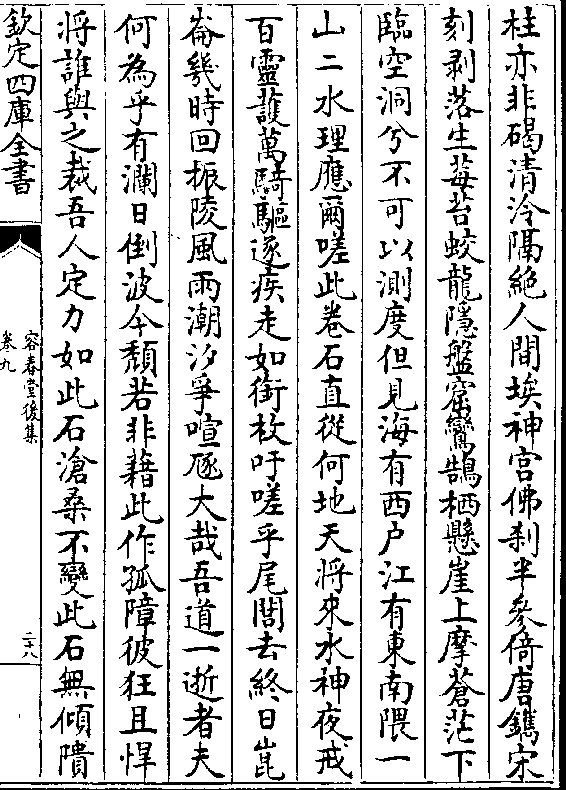 柱亦非碣清泠隔絶人間埃神宮佛刹半參倚唐鐫宋
刻剥落生莓苔蛟龍隱盤窟鸞鵠栖懸崖上摩蒼茫下
臨空洞兮不可以測度但見海有西户江有東南隈一
山二水理應爾嗟此卷石直從何地天將來水神夜戒
百靈護萬騎驅逐疾走如銜枚吁嗟乎尾閭去終日崑
崙幾時回振陵風雨潮汐爭喧豗大哉吾道一逝者夫
何為乎有瀾日倒波今頽若非藉此作孤障彼狂且悍
將誰與之裁吾人定力如此石滄桑不變此石無傾隤
欽定四庫全書
容春堂後集
卷九
二十八